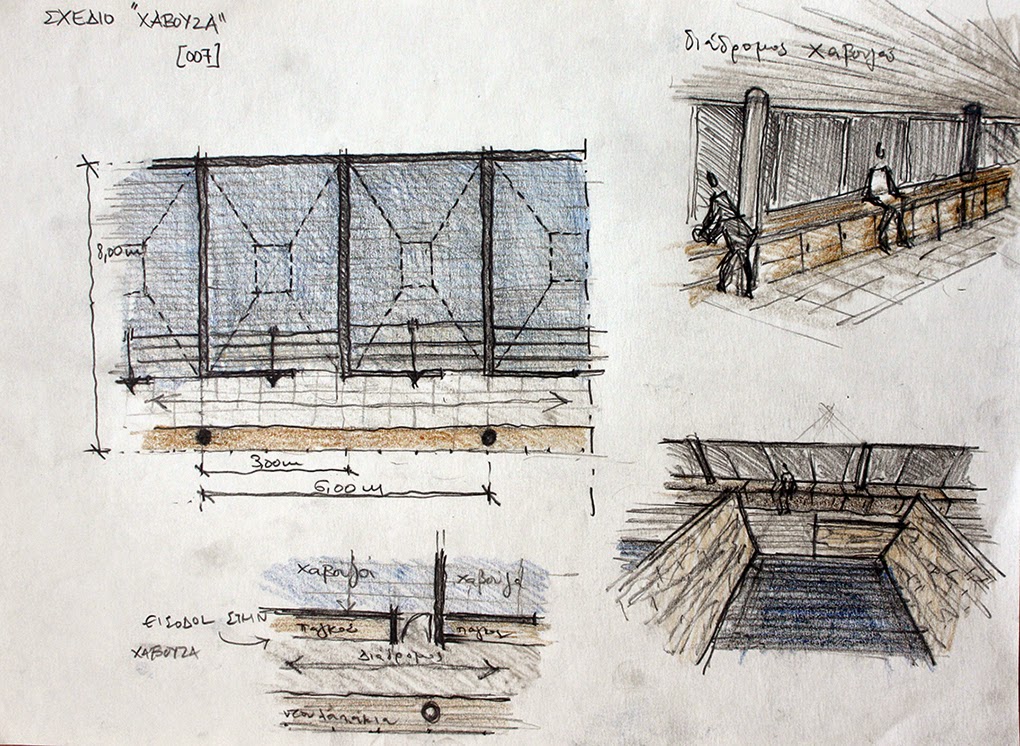 ΣΧΕΔΙΟ "ΧΑΒΟΥΖΑ"
[007]
διάδρομος χαβούζας
8,00m
3.00m
6,00m
χαβούζα
χαβούζα
ΕΙΣΟΔΟΣ ΣΤΗΝ
ΧΑΒΟΥΖΑ
παγκος
παγκος
Διάδρομος
ντουλαπάκια